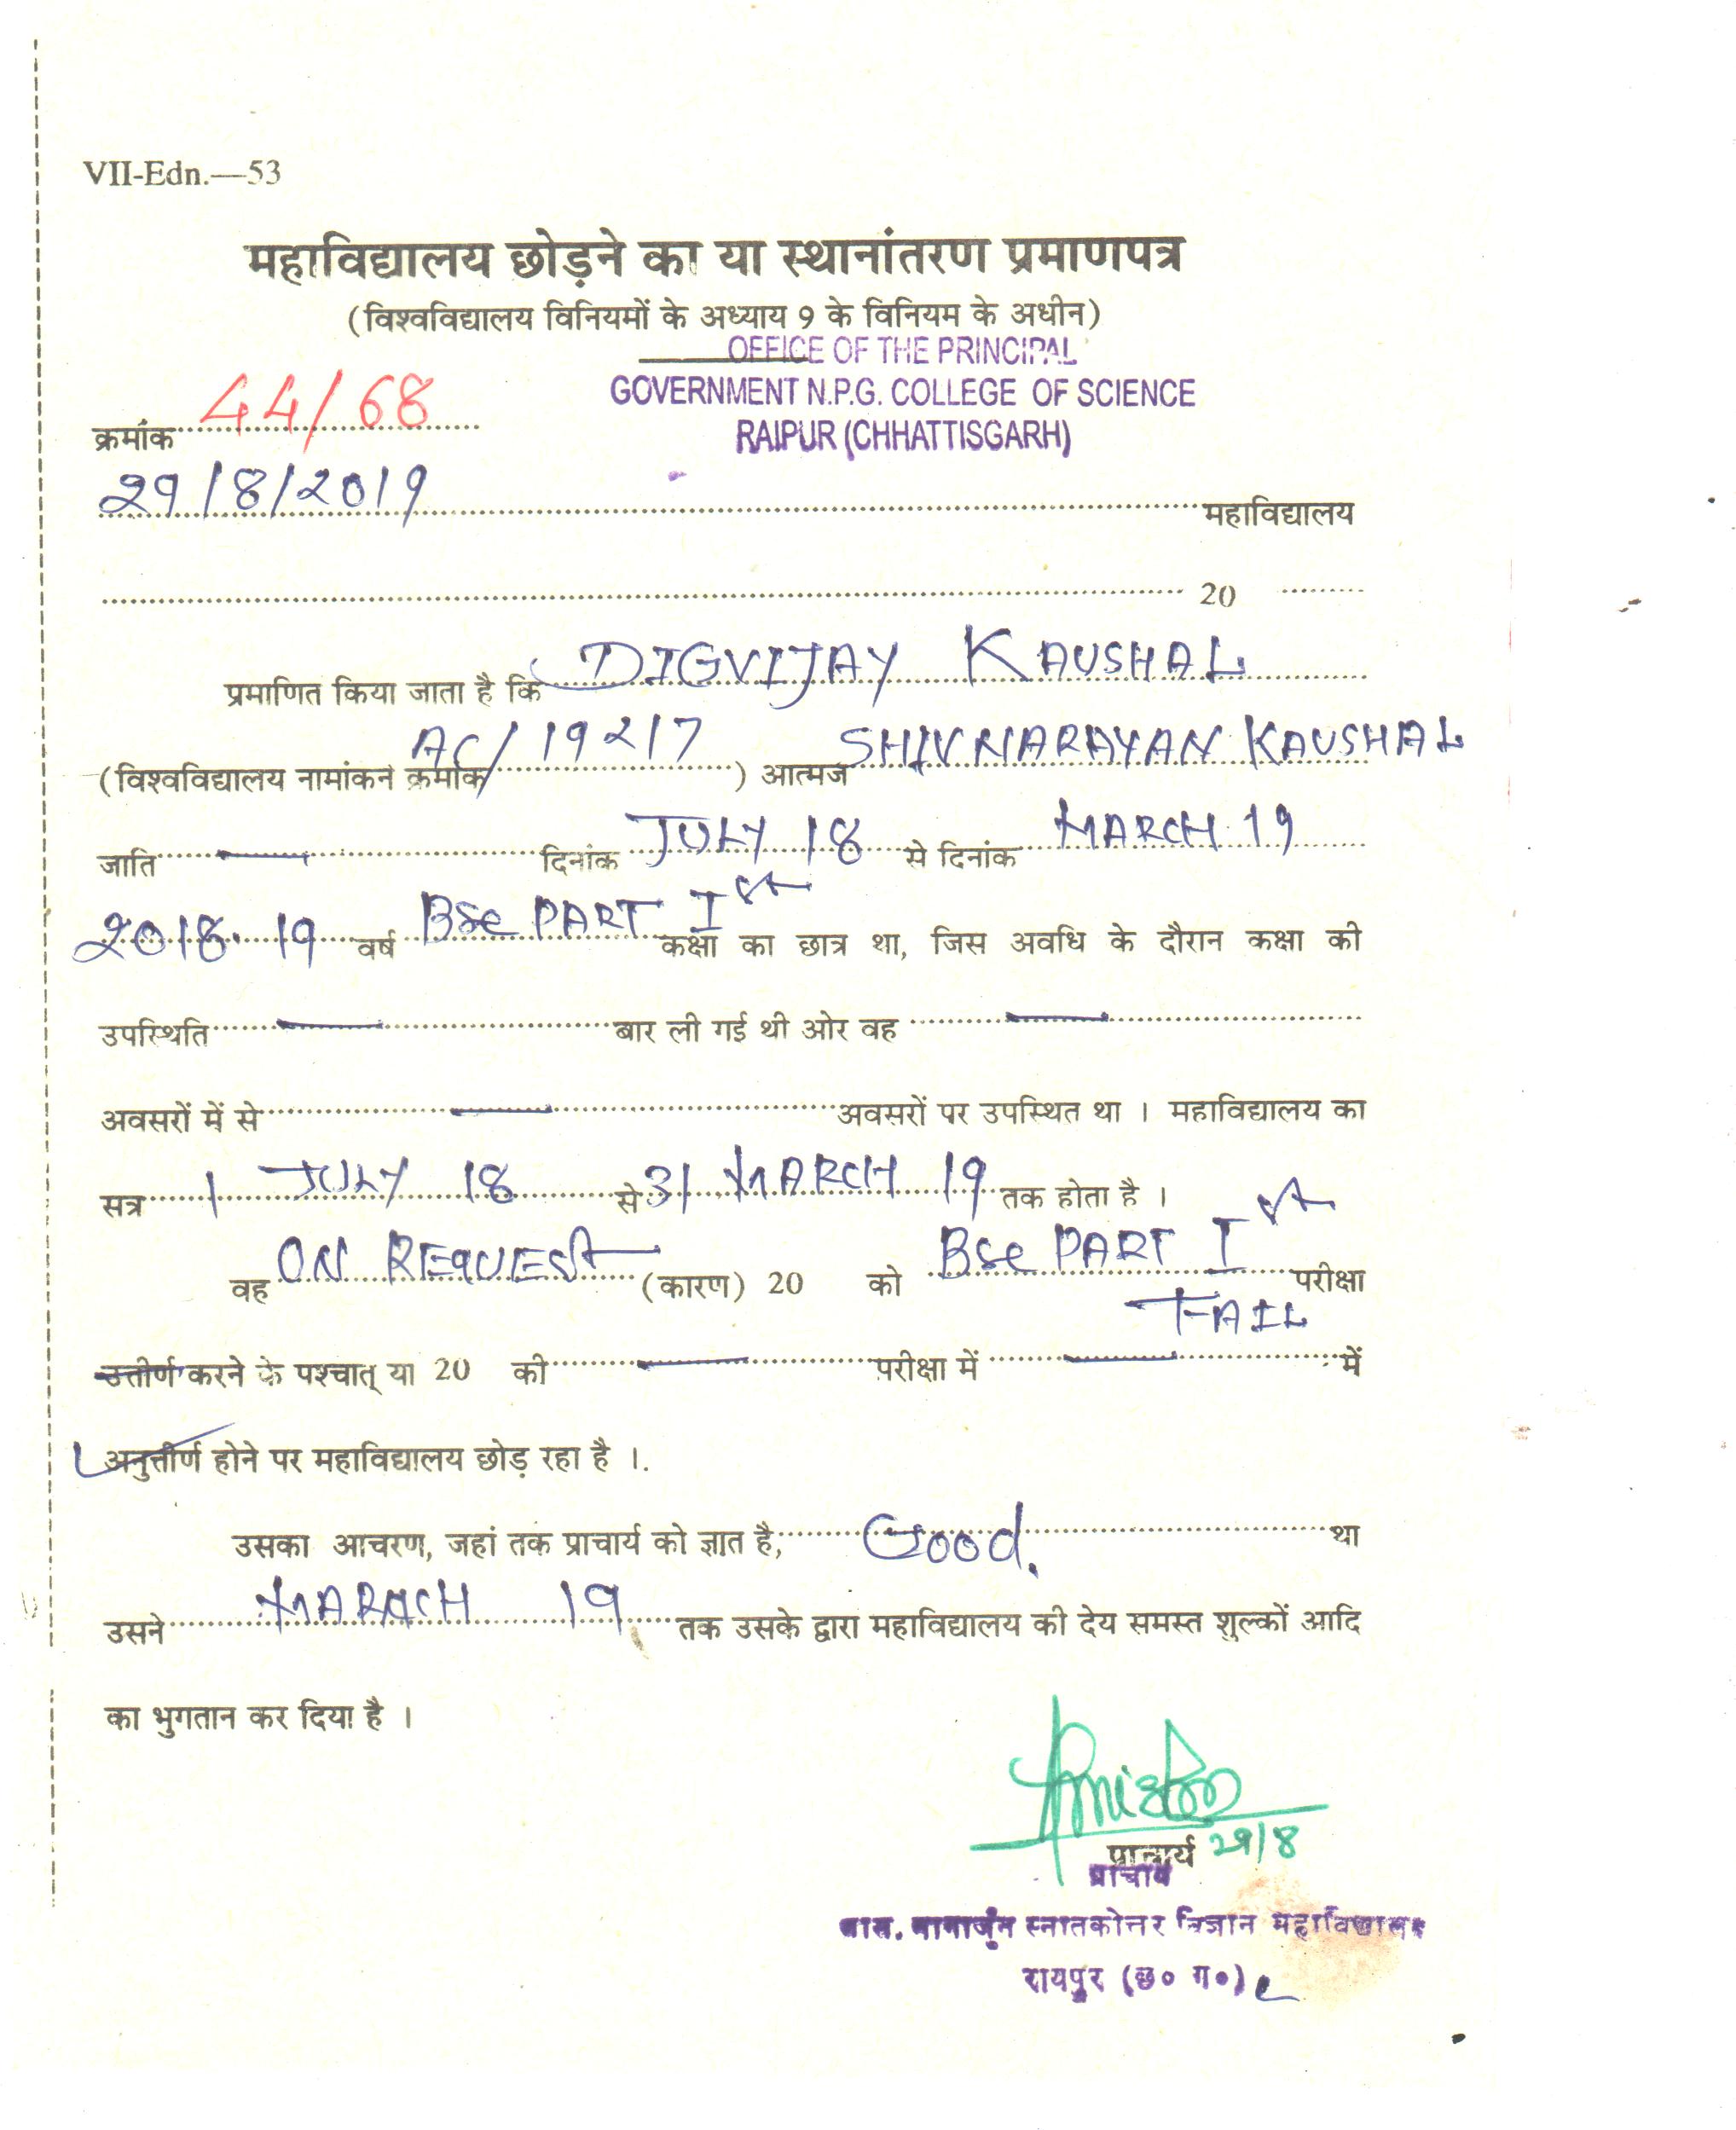 VII-Edn.—53
महाविद्यालय छोड़ने का या स्थानांतरण प्रमाणपत्र
(विश्वविद्यालय विनियमों के अध्याय 9 के विनियम के अधीन)
OFFICE OF THE PRINCIPAL
GOVERNMENT N.P.G. COLLEGE OF SCIENCE
RAIPUR (CHHATTISGARH)
क्रमांक 44/68
29/8/2019 महाविद्यालय
20
प्रमाणित किया जाता है कि DIGVIJAY KAUSHAL
(विश्वविद्यालय नामांकन क्रमांक AC/19217) आत्मज SHIVNARAYAN KAUSHAL
जाति — दिनांक JULY 18 से दिनांक MARCH 19
2018-19 वर्ष BSc PART Ist कक्षा का छात्र था, जिस अवधि के दौरान कक्षा की
उपस्थिति — बार ली गई थी ओर वह —
अवसरों में से — अवसरों पर उपस्थित था । महाविद्यालय का
सत्र 1 JULY 18 से 31 MARCH 19 तक होता है ।
वह ON REQUEST (कारण) 20 को BSc PART Ist परीक्षा
FAIL
उत्तीर्ण करने के पश्चात् या 20 की — परीक्षा में — में
अनुत्तीर्ण होने पर महाविद्यालय छोड़ रहा है ।
उसका आचरण, जहां तक प्राचार्य को ज्ञात है, Good. था
उसने MARCH 19 तक उसके द्वारा महाविद्यालय की देय समस्त शुल्कों आदि
का भुगतान कर दिया है ।
प्राचार्य 29/8
प्राचार्य
स्नातकोत्तर विज्ञान महाविद्यालय
रायपुर (छ० ग०)